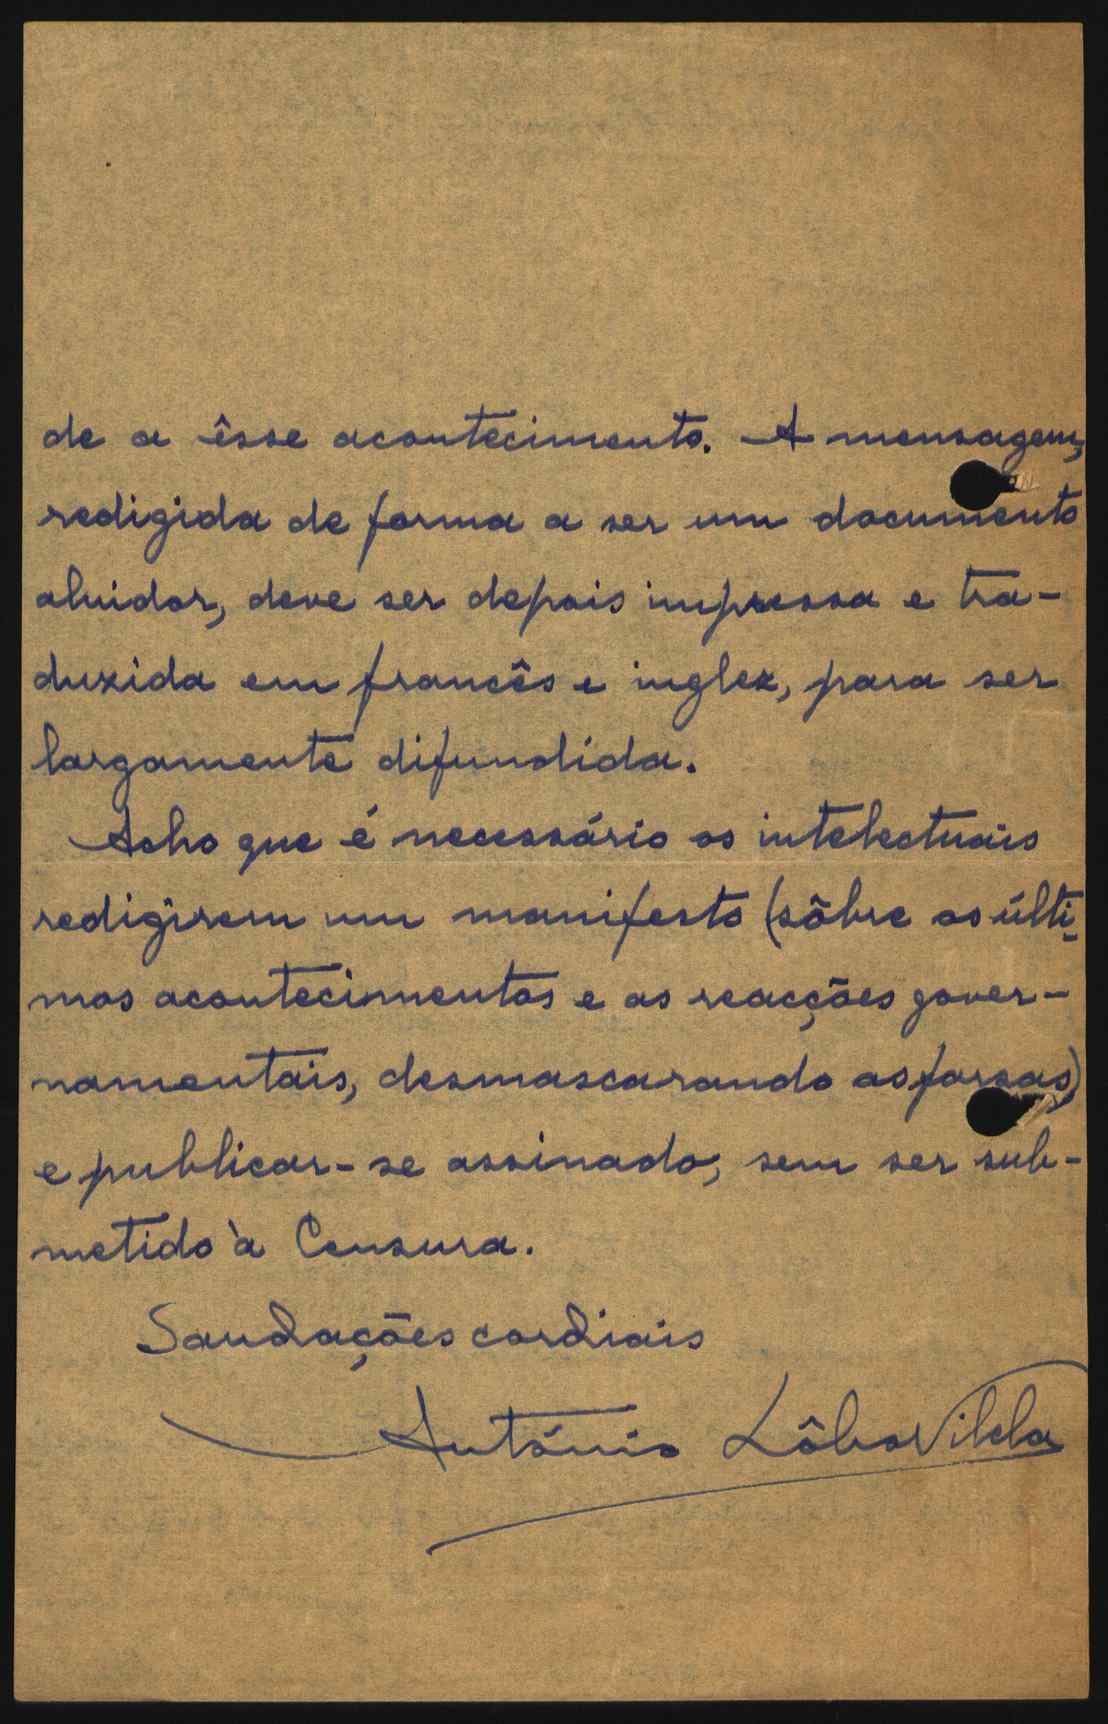 de a êsse acontecimento. A mensagem,
redigida de forma a ser um documento
aluidor, deve ser depois impressa e tra-
duzida em francês e inglez, para ser
largamente difundida.
Acho que é necessário os intelectuais
redigirem um manifesto (sôbre os últi-
mos acontecimentos e as reacções gover-
namentais, desmascarando as farsas)
e publicar-se assinado, sem ser sub-
metido à Censura.
Saudações cordiais
António Lôbo Vilela